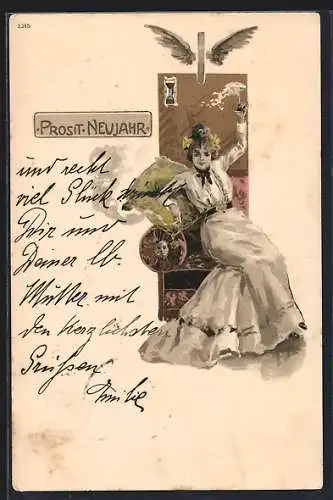 5315
PROSIT NEUJAHR
und recht
viel Glück wünscht
Dir und
Deiner lb.
Mutter mit
den herzlichsten
Grüssen
Emilie